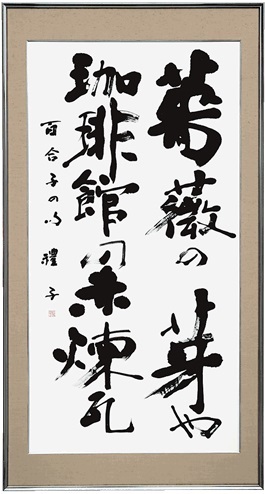 薔薇の芽や
珈琲館の赤煉瓦
百合子の句 禮子